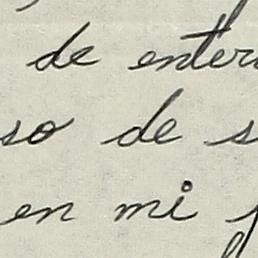 de enter
so de s
en mi